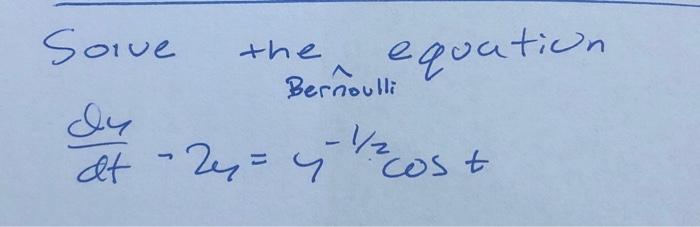 Solve the ^ equation
Bernoulli
dy/dt - 2y = y^{-1/2} cos t